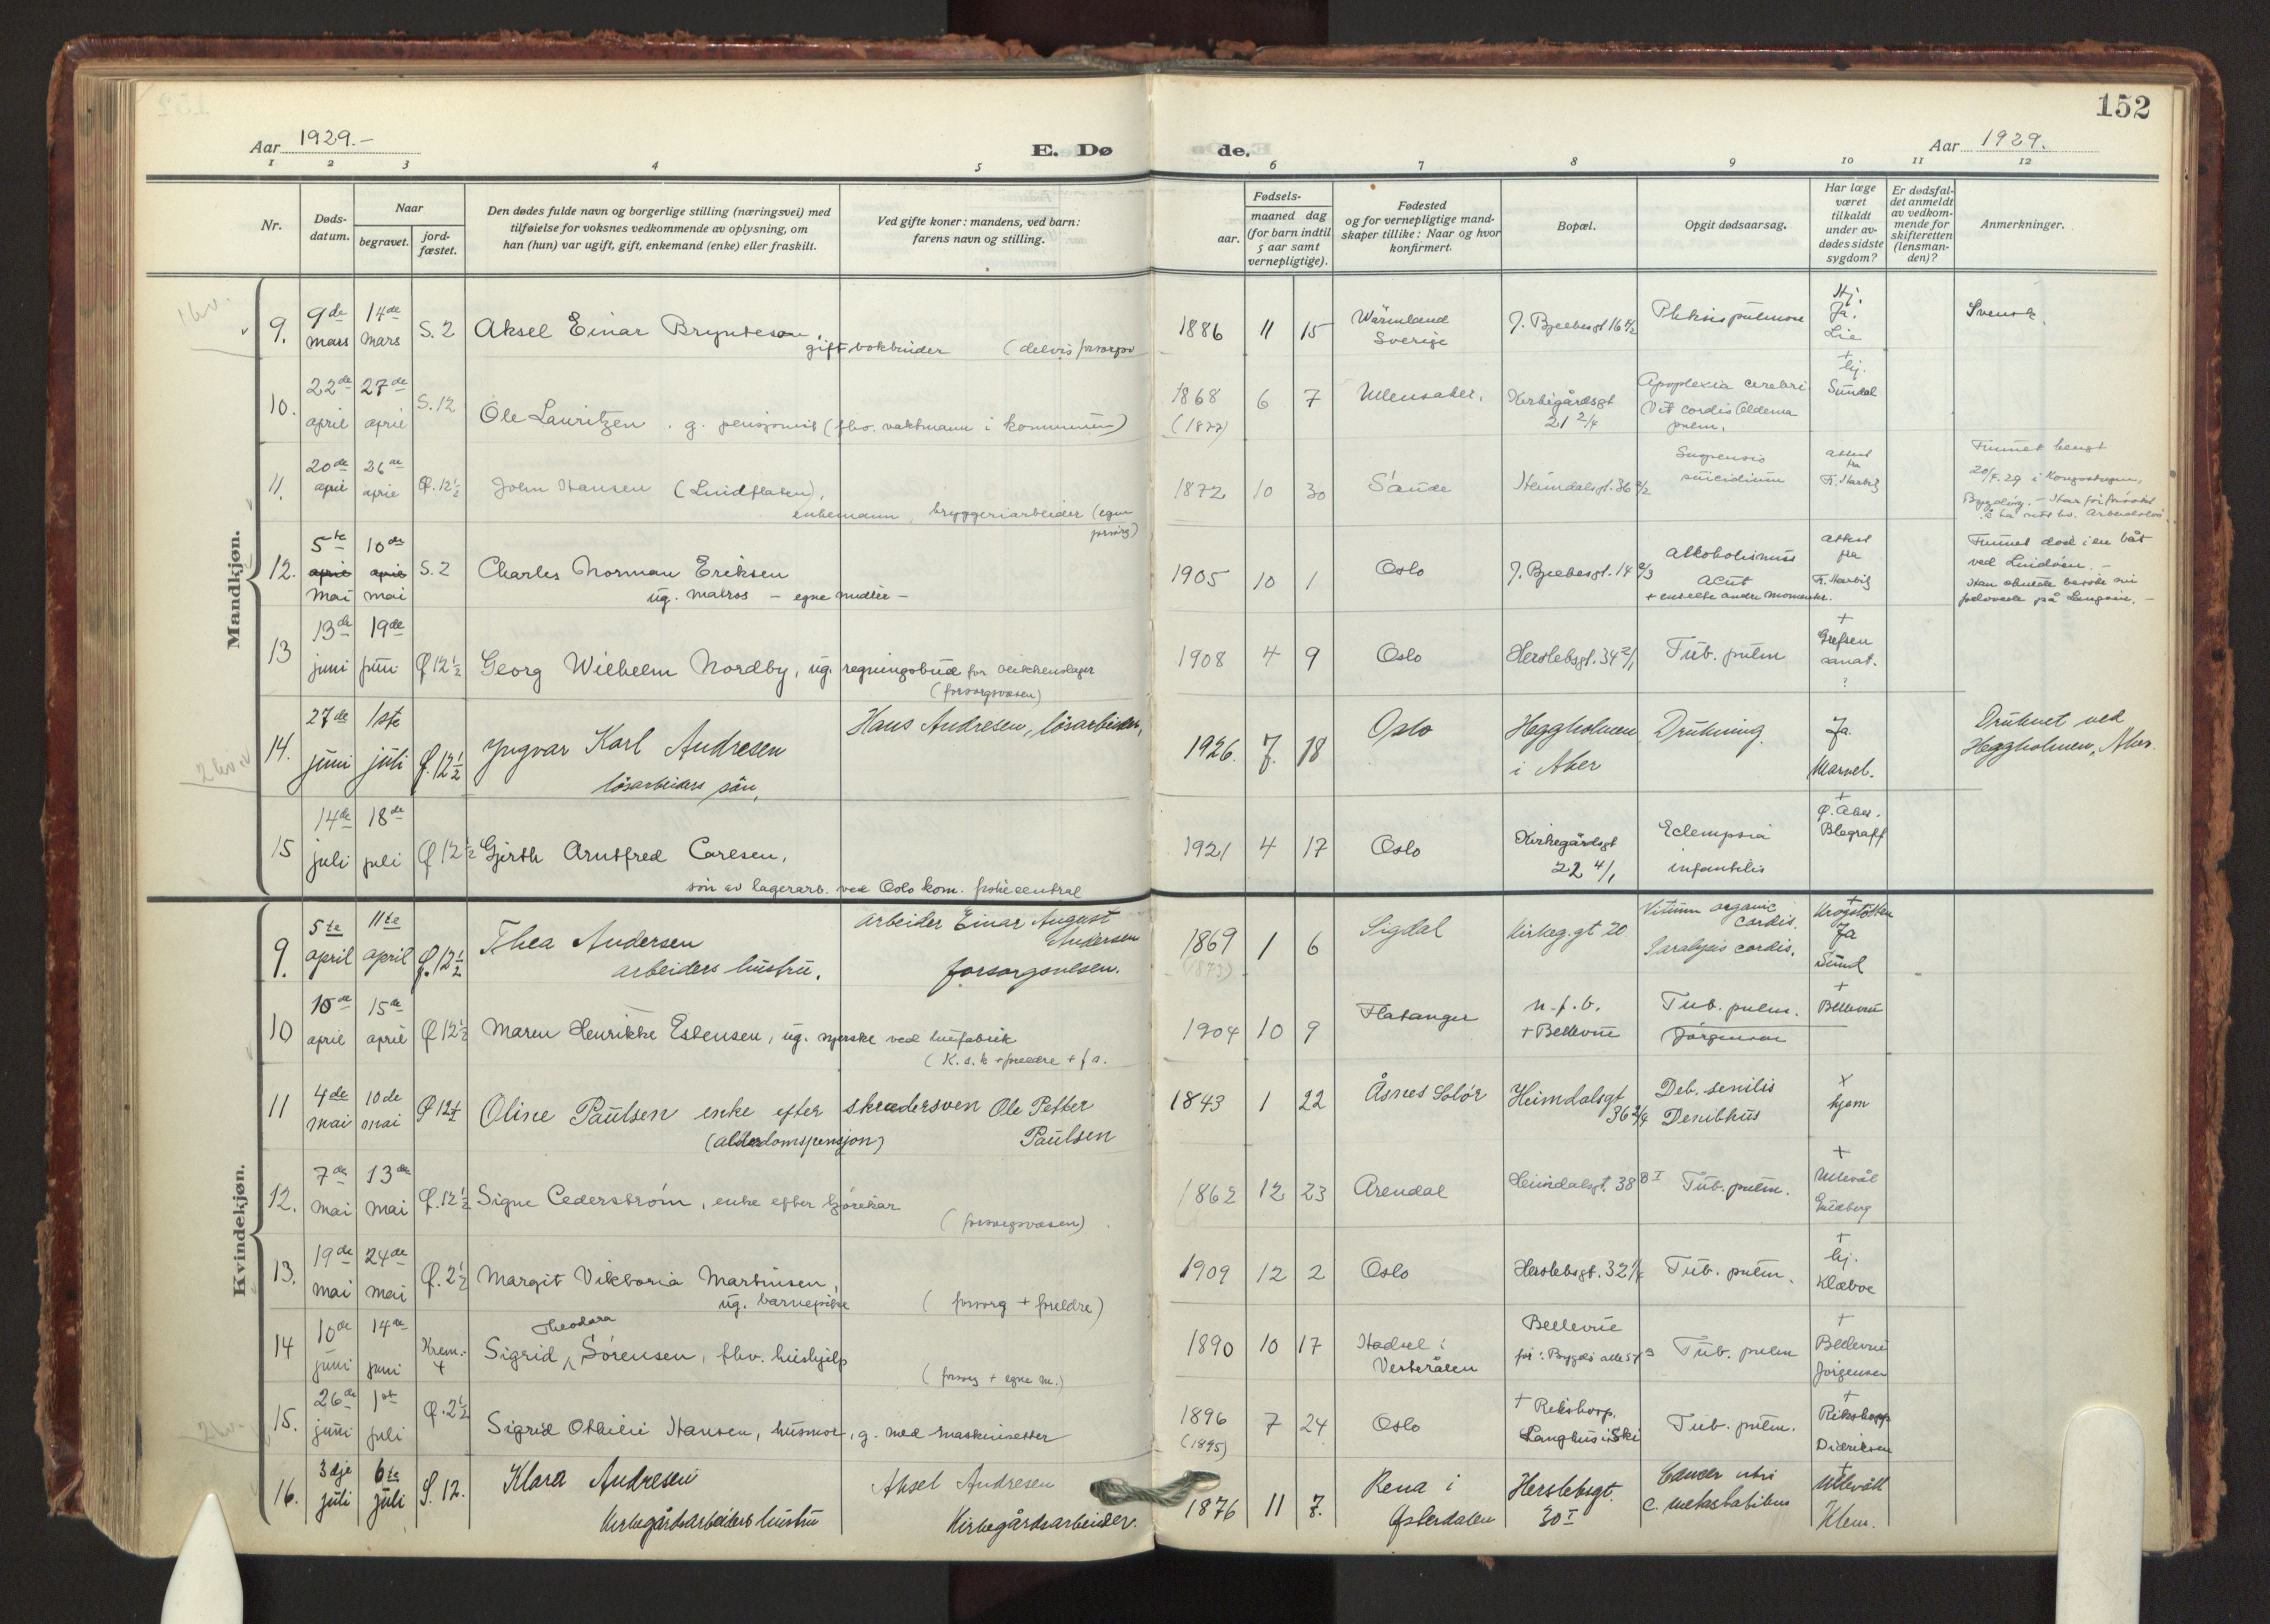 152
Aar 1929.-
E. Dø
de.
Aar 1929.
1 2 3 4 5 6 7 8 9 10 11 12
Nr.
Døds-
datum.
Naar
begravet.
jord-
fæstet.
Den dødes fulde navn og borgerlige stilling (næringsvei) med
tilføielse for voksnes vedkommende av oplysning, om
han (hun) var ugift, gift, enkemand (enke) eller fraskilt.
Ved gifte koner: mandens, ved barn:
farens navn og stilling.
Fødsels-
aar.
maaned dag
(for barn indtil
5 aar samt
vernepligtige).
Fødested
og for vernepligtige mand-
skaper tillike: Naar og hvor
konfirmert.
Bopæl.
Opgit dødsaarsag.
Har læge
været
tilkaldt
under av-
dødes sidste
sygdom?
Er dødsfal-
det anmeldt
av vedkom-
mende for
skifteretten
(lensman-
den)?
Anmerkninger.
Mandkjøn.
9. 9de mars 14de mars S. 2 Aksel Einar Bryntesen,
gift bokbinder (delvis forsorgs
1886 11 15 Wärmland Sverige J. Bjelkesgt 16 Phtisis pulmon Hj. Ja. Lie Svensk.
10. 22de april 27de april S. 12 Ole Lauritzen, g. pensjonist (fhv. vaktmann i kommunen)
1868 (1877) 6 7 Ullensaker. Kirkegårdsgt 21 2/4 Apoplexia cerebri Vit cordis Oedema pulm. + hj. Sundal
11. 20de april 26de april Ø. 12 1/2 John Hansen (Lindflaten),
enkemann, bryggeriarbeider (egen forsørg)
1872 10 30 Sande Heimdalsgt. 36 Suspensio suicidium attest fra Fr. Harbitz Funnet hengt
20/4.29 i Kongsskogen,
Bygdöy. -
12. 5te april mai 10de april mai S. 2 Charles Norman Eriksen
ug. matros - egne midler -
1905 10 1 Oslo J. Bjelkesgt. 14 2/3 Alkoholismus acut + enkelte andre momenter. attest fra Fr. Harbitz Funnet död i en båt
ved Lindöen. -
13 13de juni 19de juni Ø 12 1/2 Georg Wilhelm Nordby, ug. regningsbud for
(forsorgsvesen)
1908 4 9 Oslo Herslebsgt. 34 2/1 Tub. pulm + Grefsen sanat. ?
14. 27de juni 1ste juli Ø. 12 1/2 Yngvar Karl Andresen
lösarbeiders sön,
Hans Andresen, lösarbeider,
1926. 7. 18 Oslo Heggholmen i Aker Drukning Ja. Druknet ved
Heggholmen, Aker.
15 14de juli 18de juli Ø 12 1/2 Gjerth Arntfred Carlsen,
sön av lagerarb. ved Oslo kom.
1921 4 17 Oslo Kirkegårdsgt 22 4/1 Eclempsia infantilis + Ø. Aker. Blegraff
Kvindekjøn.
9. 5te april 11te april Ø. 12 1/2 Thea Andersen
arbeiders hustru.
arbeider Einar August
Andersen
forsorgsvesen.
1869 (1873) 1 6 Sigdal Kirkeg.gt 20 Vitium organic cordis. Paralysis cordis. + Krogstötten Ja Sund
10 10de april 15de april Ø 12 1/2 Maren Henrikke Estensen, ug. syerske ved luefabrik
(K.s.k + foreldre + f.a.
1904 10 9 Flatanger n.f.b. + Bellevue Tub. pulm. Jörgensen + Bellevue
11 4de mai 10de mai Ø 12 1/2 Oline Paulsen enke efter skredersven Ole Petter
(alderdomspensjon) Paulsen
1843 1 22 Åsnes Solör Heimdalsgt 36 2/4 Deb. senilis Denibhus x hjem
12. 7de mai 13de mai Ø. 12 1/2 Signe Cederström, enke efter kjörekar
(forsorgsvesen).
1862 12 23 Arendal Heimdalsgt. 38 B I Tub. pulm. + Ullevål Guldberg
13. 19de mai 24de mai Ø. 2 1/2 Margit Viktoria Martinsen,
ug. barnepike (forsorg + foreldre)
1909 12 2 Oslo Herslebsgt. 32 Tub. pulm. + hj. Klæboe
14 10de juni 14de juni Krem. + Sigrid Theodora Sörensen, fhv. hushjelp
(forsorg + egne m.)
1890 10 17 Hadsel i Vesterålen Bellevue för: Bygdö alle 57 Tub. pulm + Bellevue Jörgensen
15. 26de juni 1st juli Ø. 2 1/2 Sigrid Othilie Hansen, husmor, g. med maskinsetter
1896 (1895) 7 24 Oslo + Rikshosp. Langhus i Ski Tub. pulm. + Rikshosp Didriksen
16. 3dje juli 6te juli S. 12. Klara Andresen
Kirkegårdsarbeiders hustru
Aksel Andresen
Kirkegårdsarbeider.
1876 11 7. Rena i Østerdalen Herslebsgt. 30 I Cancer uteri c. metastatibus + Ullevåll Klem.